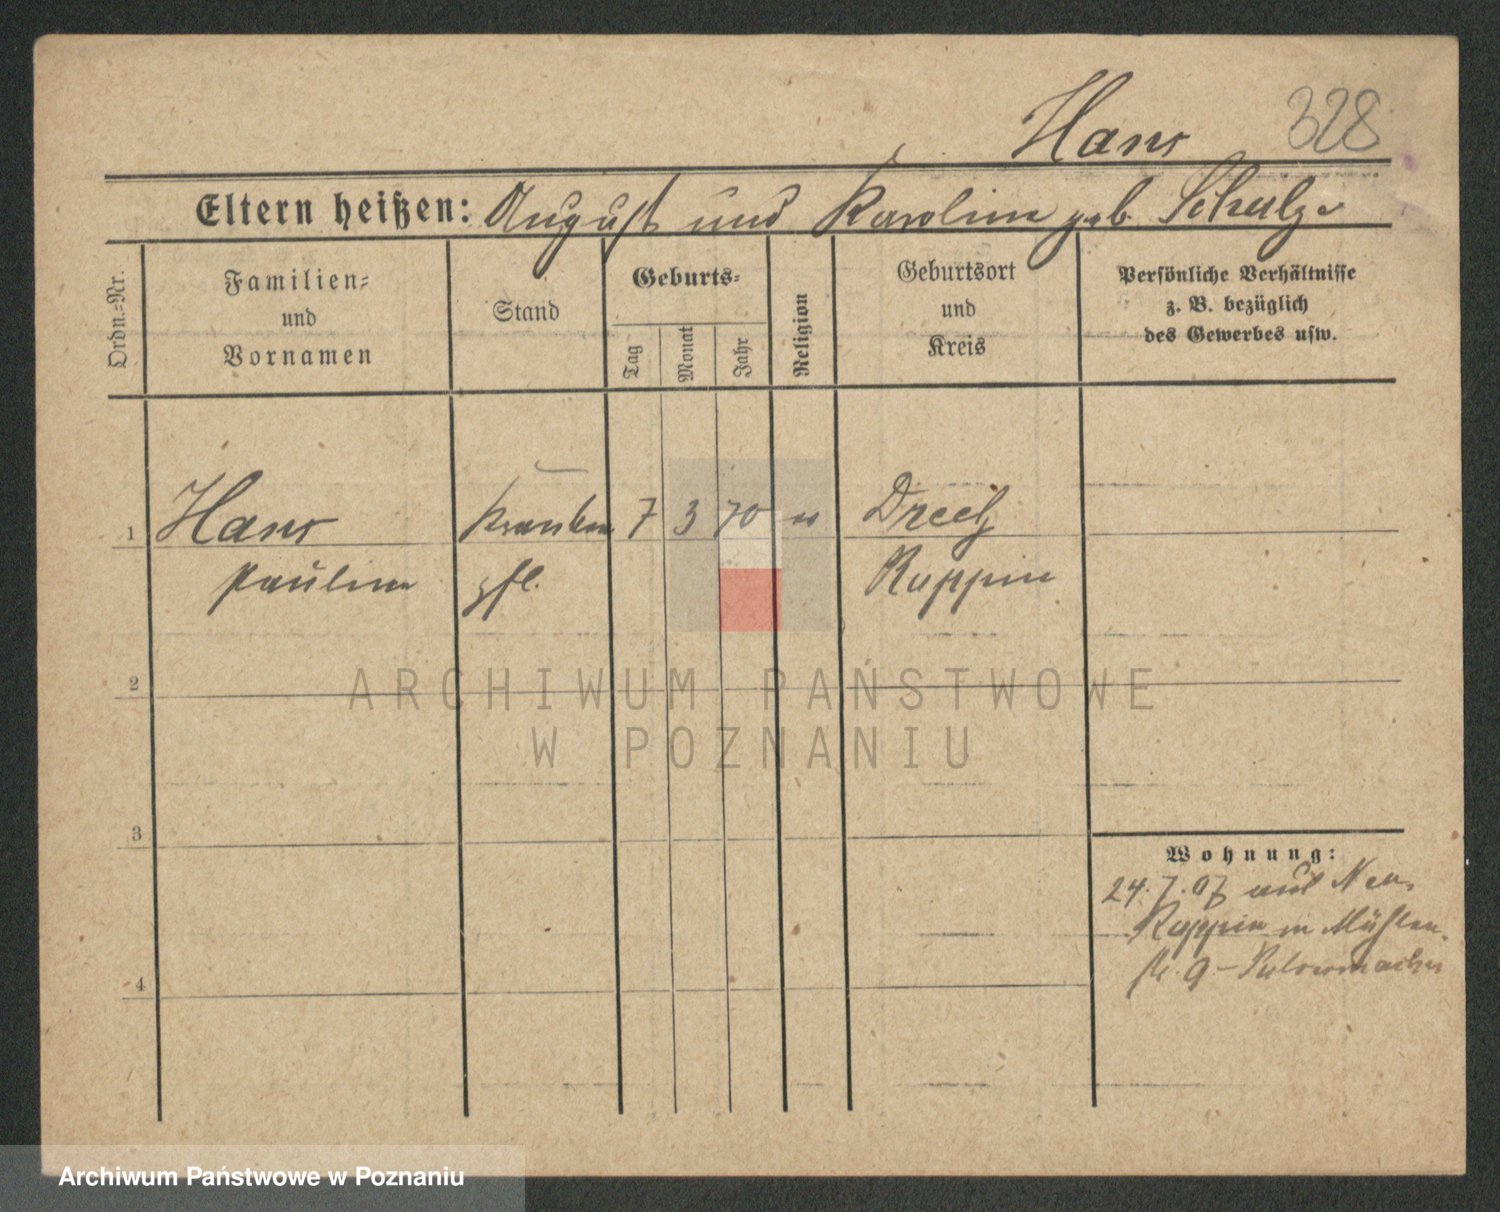 Hans 328
Eltern heißen: August und Karoline geb. Schulze
Ordn.=Nr.
Familien=
und
Vornamen
Stand
Geburts=
Tag
Monat
Jahr
Religion
Geburtsort
und
Kreis
Persönliche Verhältnisse
z. B. bezüglich
des Gewerbes usw.
1 Hans Kranken 7 3 70 Dreetz
Pauline pfl. Ruppin
2
3
4
Wohnung:
24.7.07 aus Neu-
Ruppin in Mühlen-
str. 9 -
ARCHIWUM PAŃSTWOWE
W POZNANIU
Archiwum Państwowe w Poznaniu